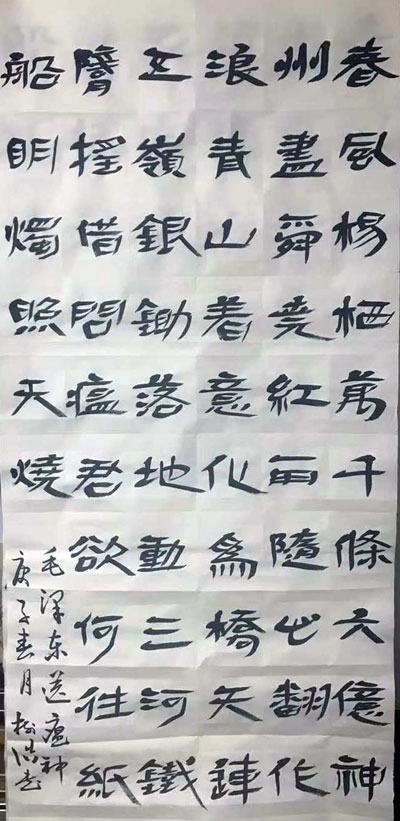 春風楊柳萬千條六億神
州盡舜堯紅雨隨心翻作
浪青山着意化為橋天連
五嶺銀鋤落地動三河鐵
臂搖借問瘟君欲何往紙
船明燭照天燒
毛泽东送瘟神
庚子春月松浩书